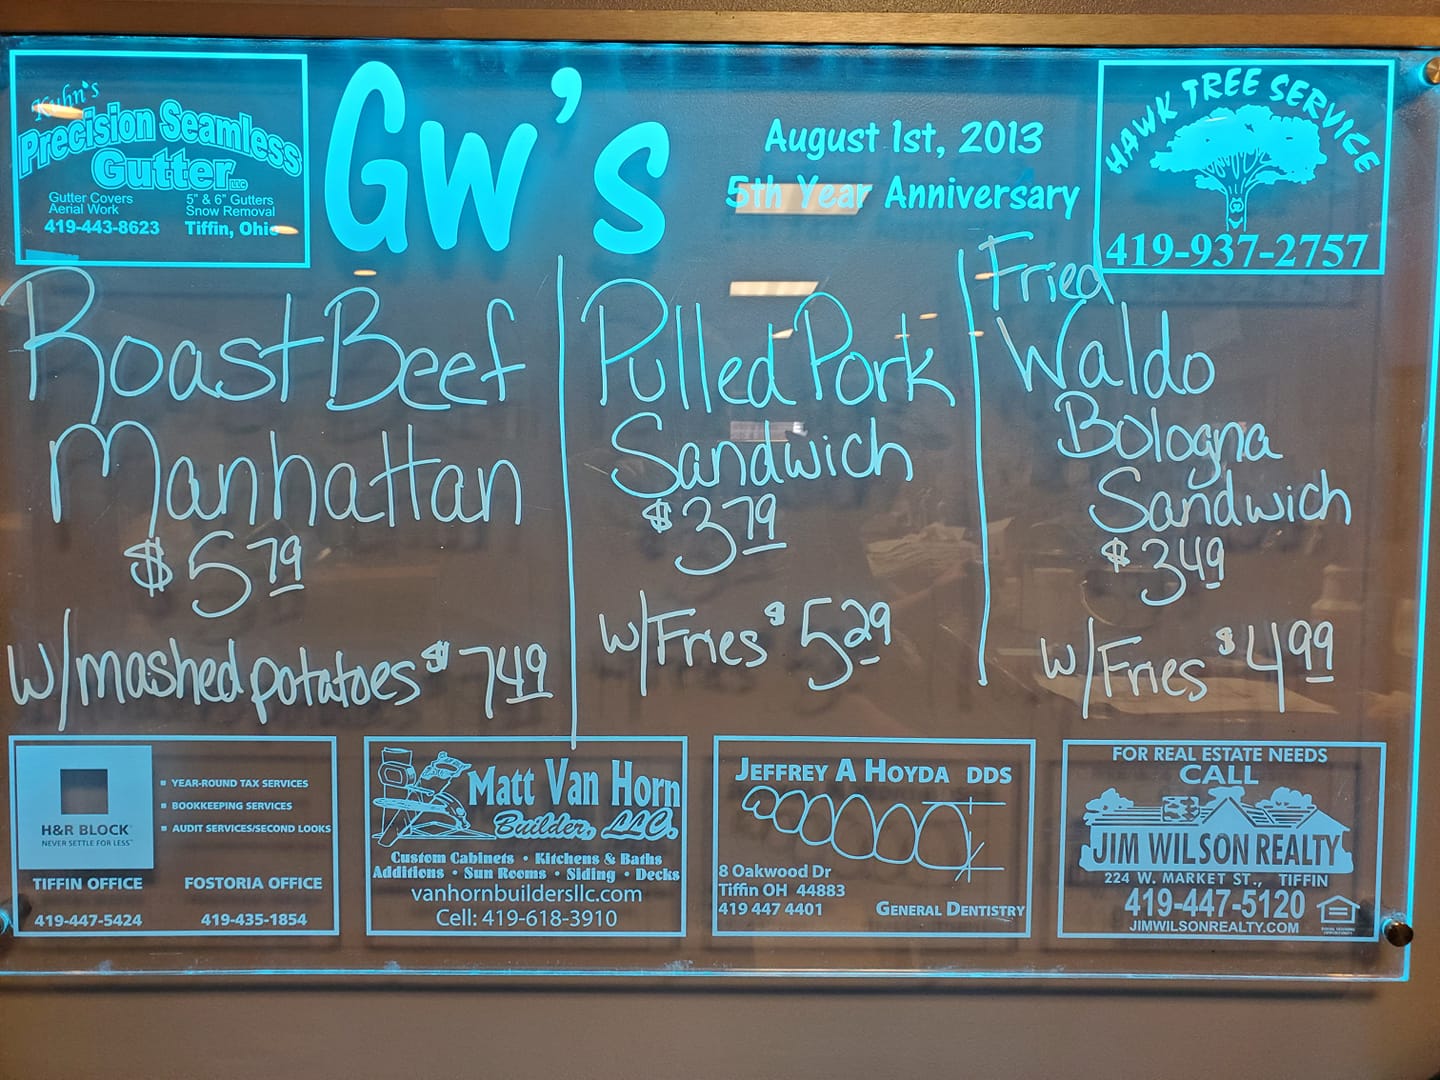 Kuhn's
Precision Seamless
Gutter LLC
Gutter Covers
Aerial Work
419-443-8623
5" & 6" Gutters
Snow Removal
Tiffin, Ohio
Gw's
August 1st, 2013
5th Year Anniversary
HAWK TREE SERVICE
419-937-2757
Roast Beef
Manhattan
$5.79
w/mashed potatoes $7.49
Pulled Pork
Sandwich
$3.79
w/Fries $5.29
Fried
Waldo
Bologna
Sandwich
$3.49
w/Fries $4.99
H&R BLOCK
NEVER SETTLE FOR LESS
YEAR-ROUND TAX SERVICES
BOOKKEEPING SERVICES
AUDIT SERVICES/SECOND LOOKS
TIFFIN OFFICE
419-447-5424
FOSTORIA OFFICE
419-435-1854
Matt Van Horn
Builder, LLC.
Custom Cabinets • Kitchens & Baths
Additions • Sun Rooms • Siding • Decks
vanhornbuildersllc.com
Cell: 419-618-3910
JEFFREY A HOYDA DDS
8 Oakwood Dr
Tiffin OH 44883
419 447 4401
GENERAL DENTISTRY
FOR REAL ESTATE NEEDS
CALL
JIM WILSON REALTY
224 W. MARKET ST., TIFFIN
419-447-5120
JIMWILSONREALTY.COM
EQUAL HOUSING
OPPORTUNITY